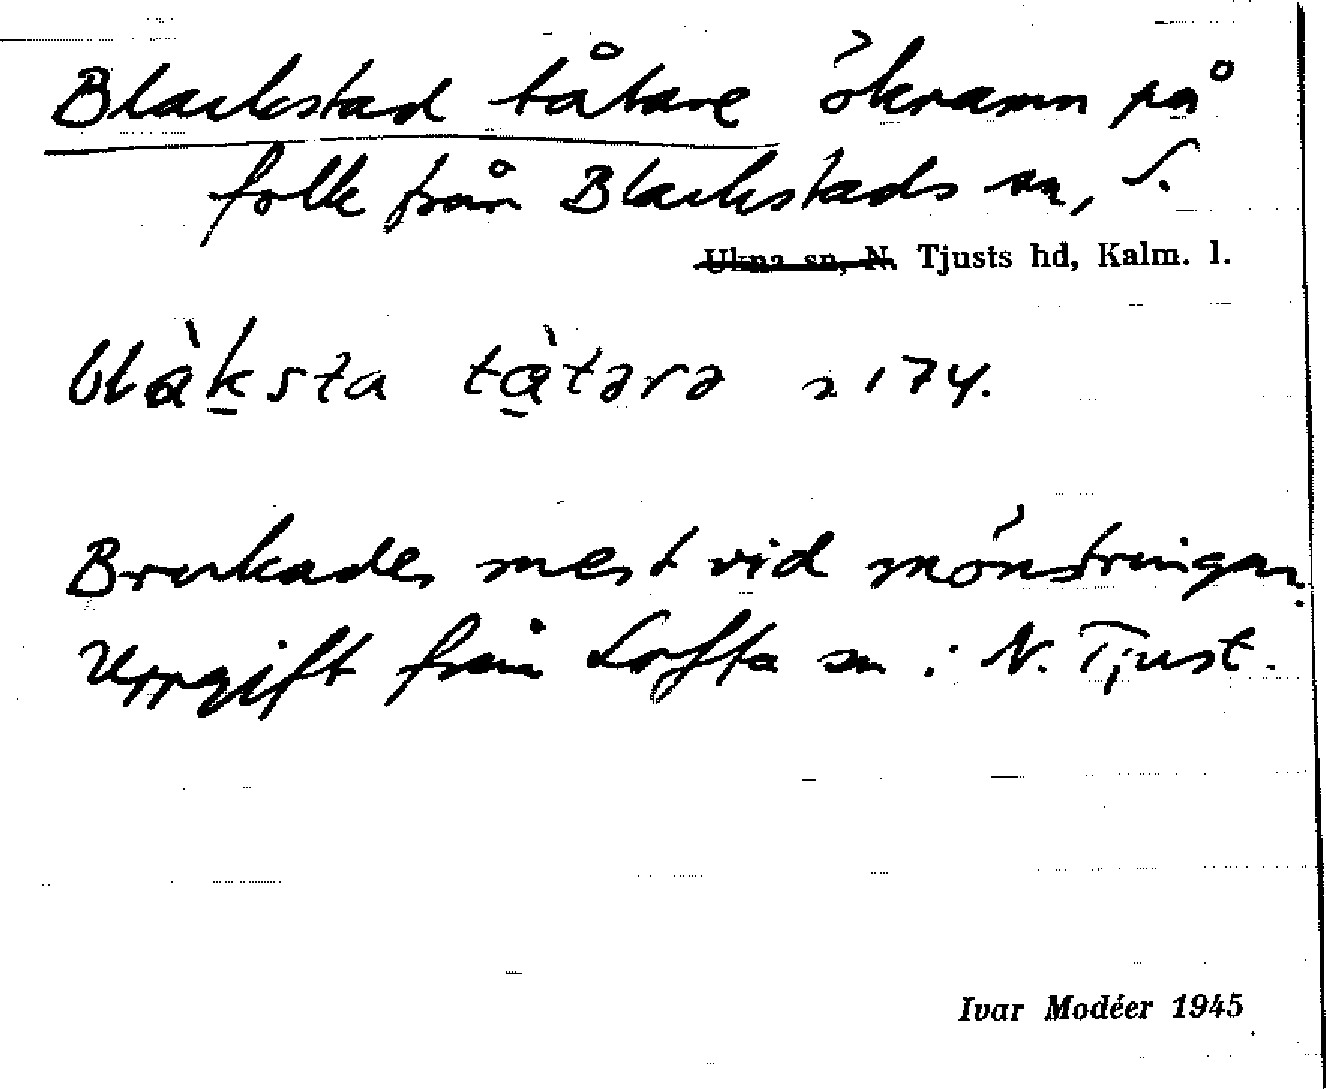 Blackstad tåtare öknamn på
folk från Blackstads sn, S.
Ukna sn, N. Tjusts hd, Kalm. l.
blàksta tàtərə 2174.
Brukades mest vid mönstringar.
Uppgift från Lofta sn i N. Tjust.
Ivar Modéer 1945